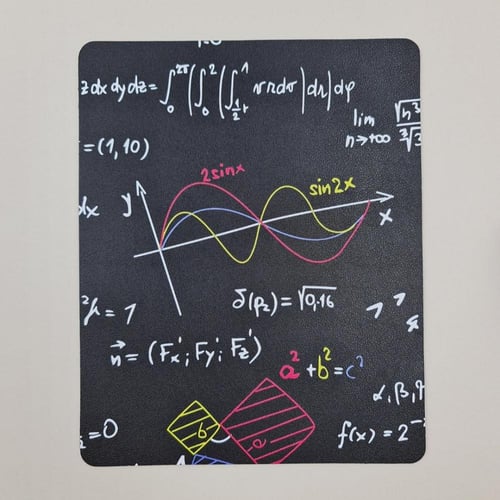 z dx dy dz = ∫₀^2π (∫₀^2 (∫_½r^1 v r dσ) dr) dφ
lim n→+∞
=(1,10)
2sinx
sin2x
dx
y
x
δ(p₂)=√0,16
=1
n⃗=(Fx'; Fy'; Fz')
a²+b²=c²
α,β,
b
a
=0
f(x)=2⁻